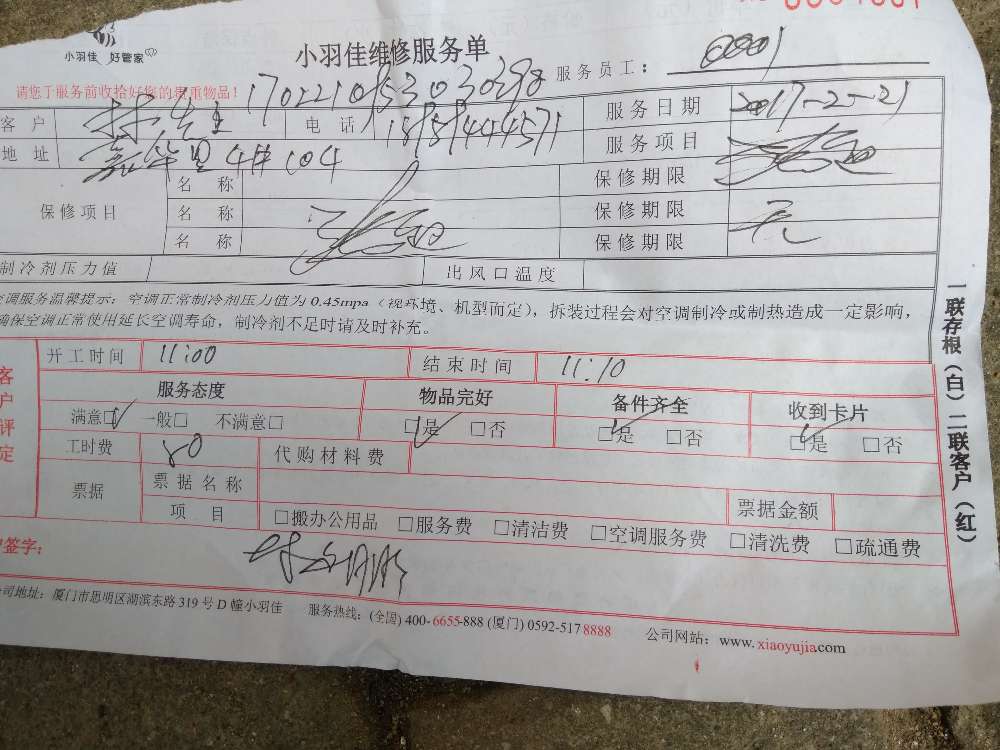 小羽佳 好管家
小羽佳维修服务单
服务员工：0001
请您于服务前收拾好您的贵重物品！
170221053030398
客户 林先生 电话 18151444571 服务日期 2017-2-21
地址 嘉华里4#104 服务项目
保修项目 名称 保修期限
名称 保修期限 无
名称 保修期限
制冷剂压力值 出风口温度
空调服务温馨提示：空调正常制冷剂压力值为0.45mpa（视环境、机型而定），拆装过程会对空调制冷或制热造成一定影响，
确保空调正常使用延长空调寿命，制冷剂不足时请及时补充。
客户评定
开工时间 11:00 结束时间 11:10
服务态度 物品完好 备件齐全 收到卡片
满意□ 一般□ 不满意□ □是 □否 □是 □否 □是 □否
工时费 80 代购材料费
票据 票据名称 票据金额
项目 □搬办公用品 □服务费 □清洁费 □空调服务费 □清洗费 □疏通费
签字：
公司地址：厦门市思明区湖滨东路319号D幢小羽佳 服务热线：(全国) 400-6655-888 (厦门) 0592-517 8888 公司网站：www.xiaoyujia.com
一联存根（白）二联客户（红）